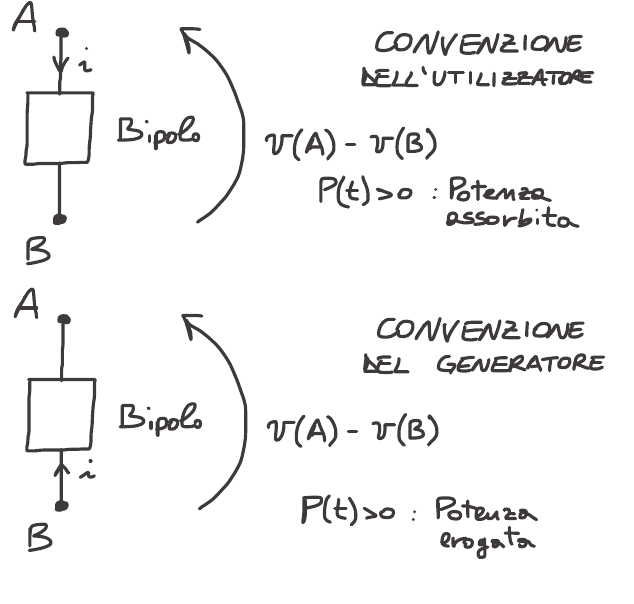 A
i
Bipolo
B
CONVENZIONE
DELL'UTILIZZATORE
v(A) - v(B)
P(t)>0 : Potenza
assorbita
A
Bipolo
i
B
CONVENZIONE
DEL GENERATORE
v(A) - v(B)
P(t)>0 : Potenza
erogata